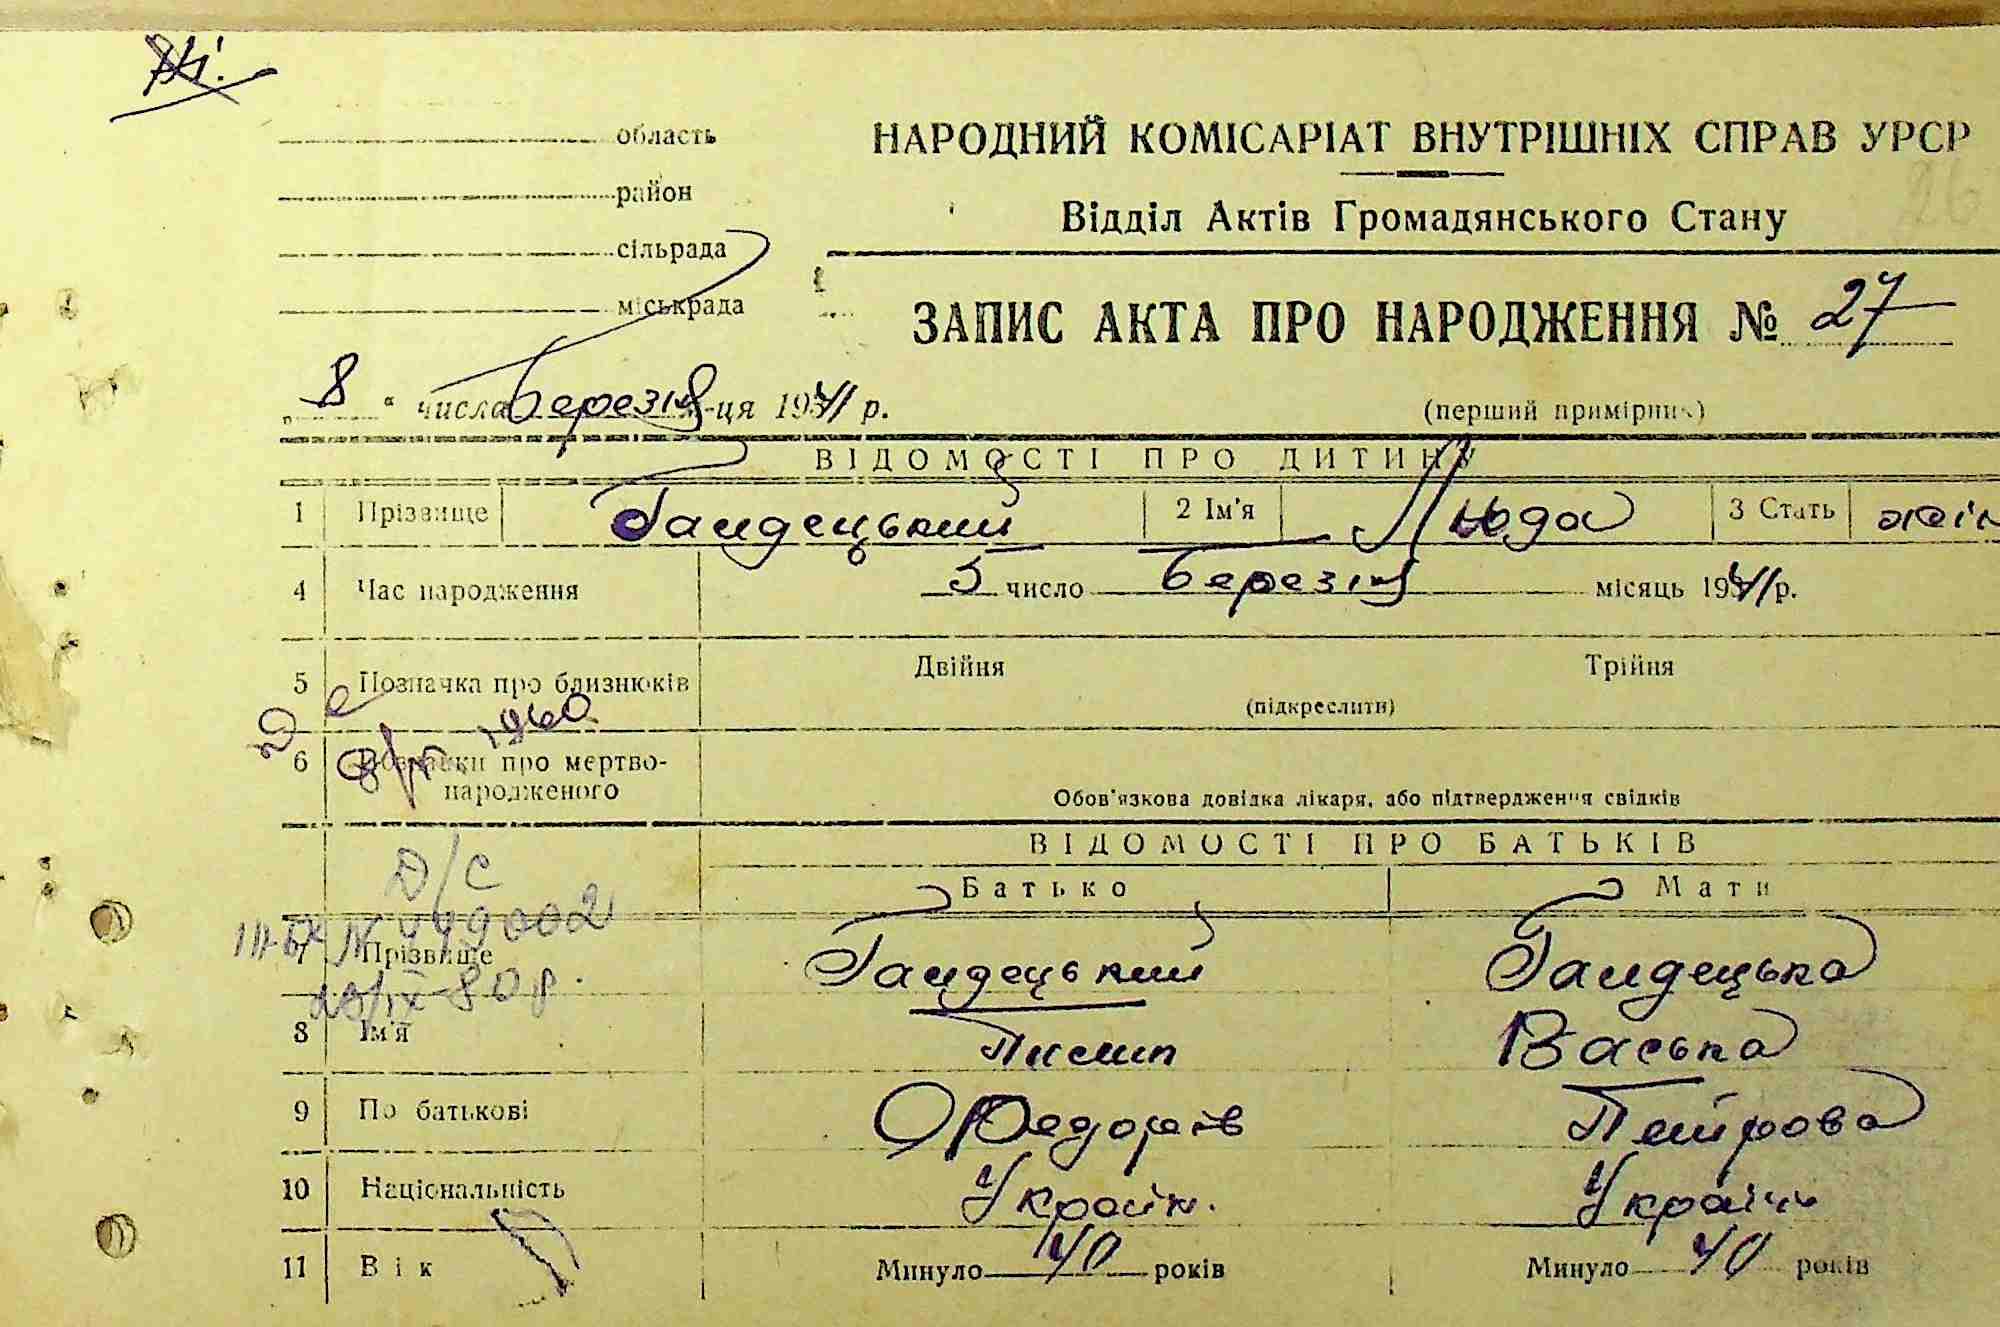 область
НАРОДНИЙ КОМІСАРІАТ ВНУТРІШНІХ СПРАВ УРСР
район
26
Відділ Актів Громадянського Стану
сільрада
міськрада
ЗАПИС АКТА ПРО НАРОДЖЕННЯ № 27
„ 8 “ числа березня м-ця 1941 р.
(перший примірник)
ВІДОМОСТІ ПРО ДИТИНУ
1 Прізвище Гайдецький 2 Ім'я Люда 3 Стать жін
4 Час народження 5 число березня місяць 1941 р.
5 Позначка про близнюків Двійня Трійня
(підкреслити)
1960
6 Позначки про мертво-
народженого
Обов'язкова довідка лікаря, або підтвердження свідків
ВІДОМОСТІ ПРО БАТЬКІВ
Д/С
Батько Мати
№ 449002
7 Прізвище Гайдецький Гайдецька
8 Ім'я Пилип Васька
9 По батькові Федорів Петрова
10 Національність Україн. Українк
11 Вік Минуло 40 років Минуло 40 років